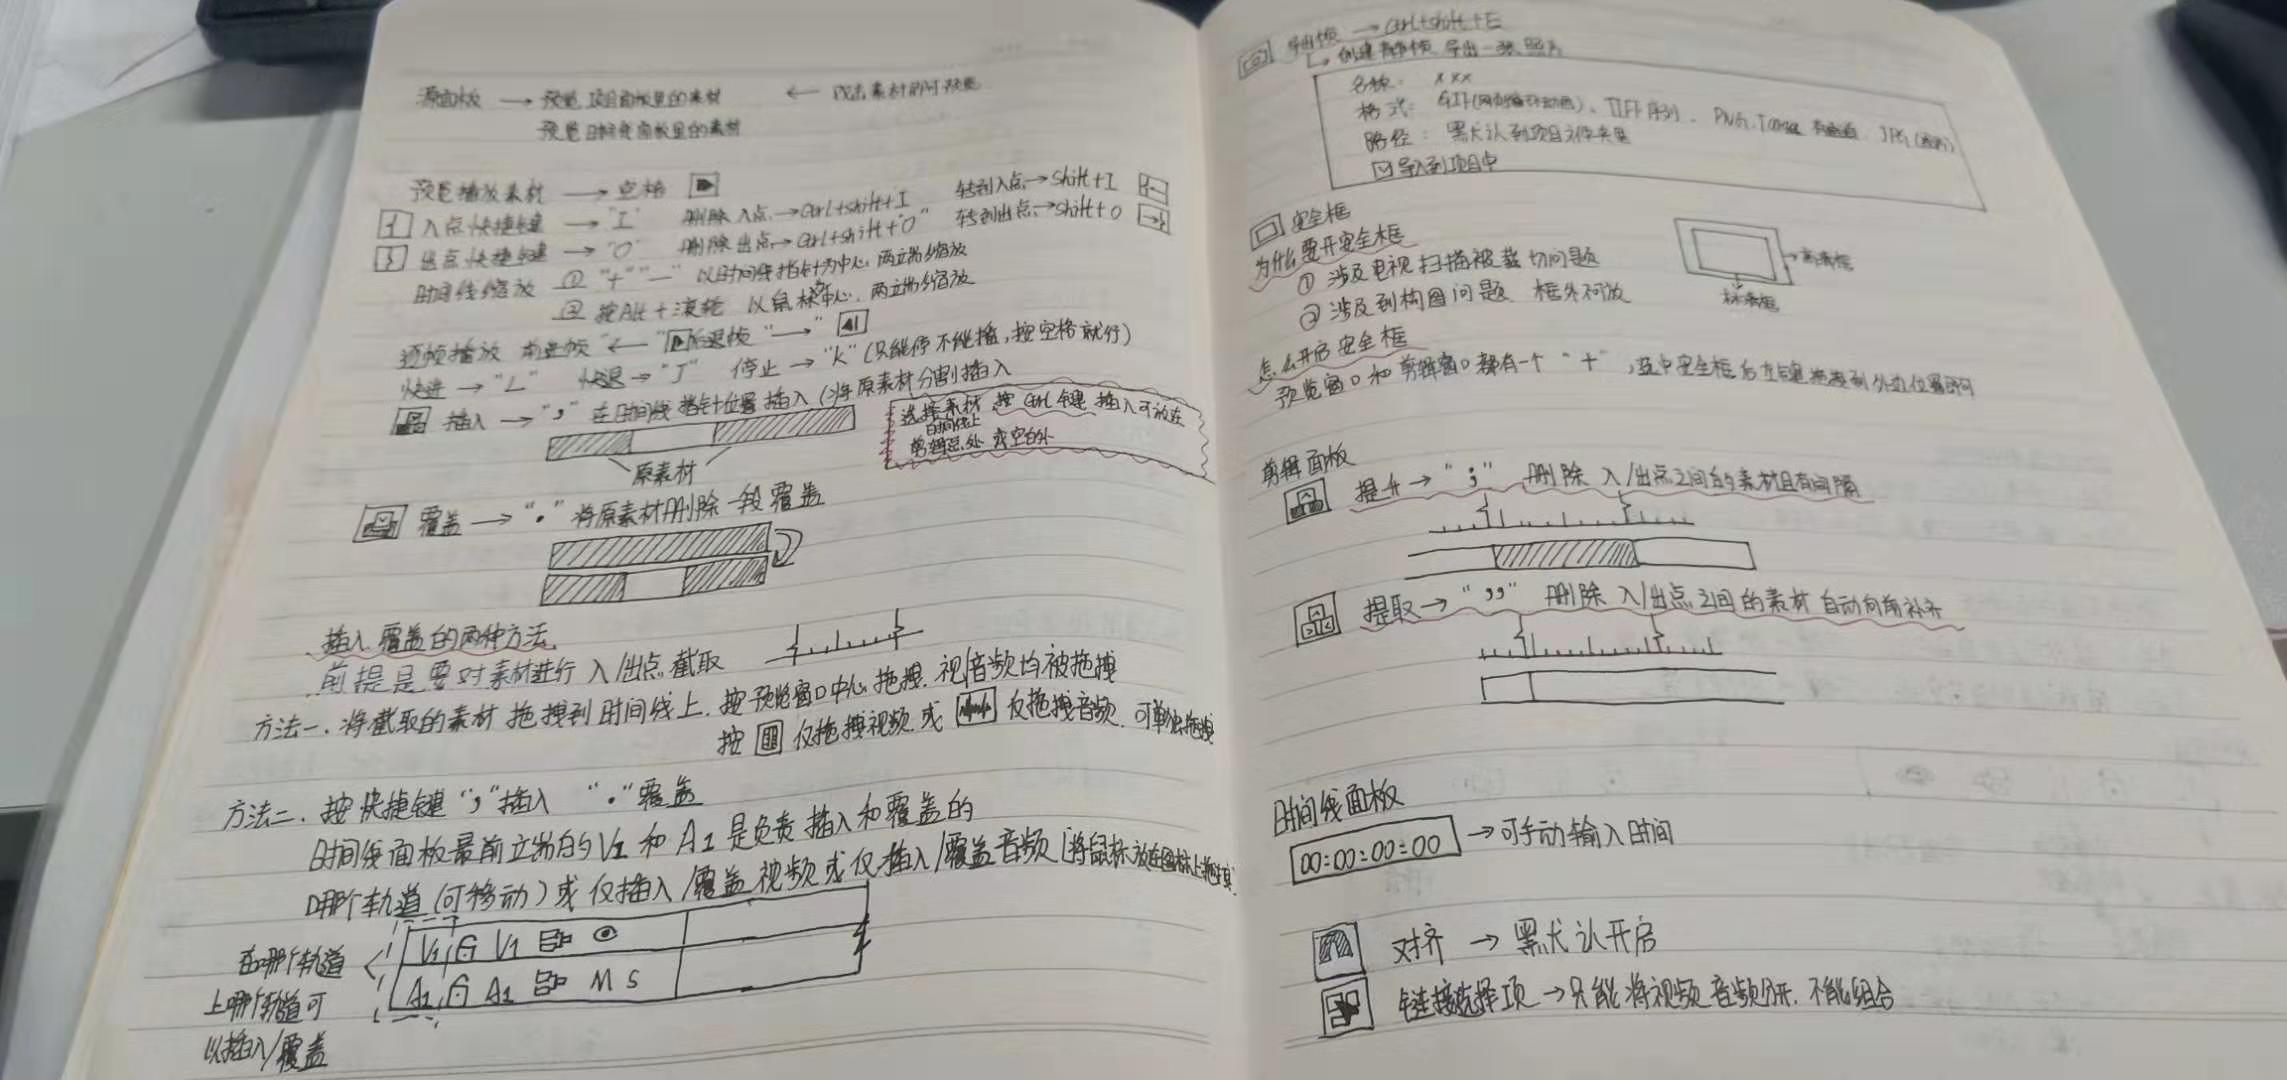 源面板 → 预览项目面板里的素材 ← 双击素材即可预览
预览时间线面板里的素材
预览播放素材 → 空格
入点快捷键 → "I" 删除入点 → Ctrl+shift+I 转到入点 → shift+I
出点快捷键 → "O" 删除出点 → Ctrl+shift+"O" 转到出点 → shift+O
时间线缩放 ① "+" "—" 以时间线指针为中心 两端缩放
② 按Alt+滚轮 以鼠标为中心, 两端缩放
逐帧播放 前进帧 "←" 后退帧 "→"
快进 → "L" 快退 → "J" 停止 → "K" (只能停不能播, 按空格就行)
插入 → "," 在时间线指针位置插入 (将原素材分割插入
选择素材 按 Ctrl 键 插入可放在
时间线上
剪辑点处 或空白处
原素材
覆盖 → "." 将原素材删除一段覆盖
插入 覆盖的两种方法
前提是要对素材进行 入/出点 截取
方法一. 将截取的素材拖拽到时间线上. 按预览窗口中心拖拽. 视/音频均被拖拽
按 仅拖拽视频 或 仅拖拽音频. 可单独拖拽
方法二. 按快捷键 "," 插入 "." 覆盖
时间线面板最前端的V1 和 A1 是负责插入和覆盖的
哪个轨道 (可移动) 或 仅插入/覆盖视频或仅插入/覆盖音频 (将鼠标放在图标上拖拽
在哪个轨道
上哪个轨道可
以插入/覆盖
V1 V1
A1 A1 M S
导出帧 → Ctrl+shift+E
创建静帧 导出一张照片
名称: xxx
格式: GIF(网页循环动画)、TIFF序列、PNG、Targa 有通道、JPG
路径: 默认到项目文件夹里
导入到项目中
安全框
为什么要开安全框
① 涉及电视扫描被裁切问题
② 涉及到构图问题 框外不放
怎么开启安全框
预览窗口和剪辑窗口都有一个 "+", 选中安全框后左键拖拽到外边位置即可
剪辑面板
提升 → ";" 删除 入/出点之间的素材且有间隔
提取 → "," 删除 入/出点之间的素材 自动向前补齐
时间线面板
00:00:00:00 → 可手动输入时间
对齐 → 默认开启
链接选择项 → 只能将视频音频分开. 不能组合